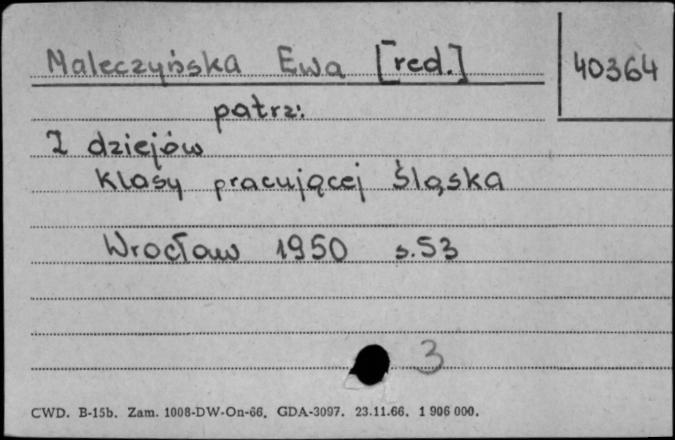 Maleczyńska Ewa [red.]
40364
patrz:
Z dziejów
klasy pracującej Śląska
Wrocław 1950 s.53
3
CWD. B-15b. Zam. 1008-DW-On-66. GDA-3097. 23.11.66. 1 906 000.